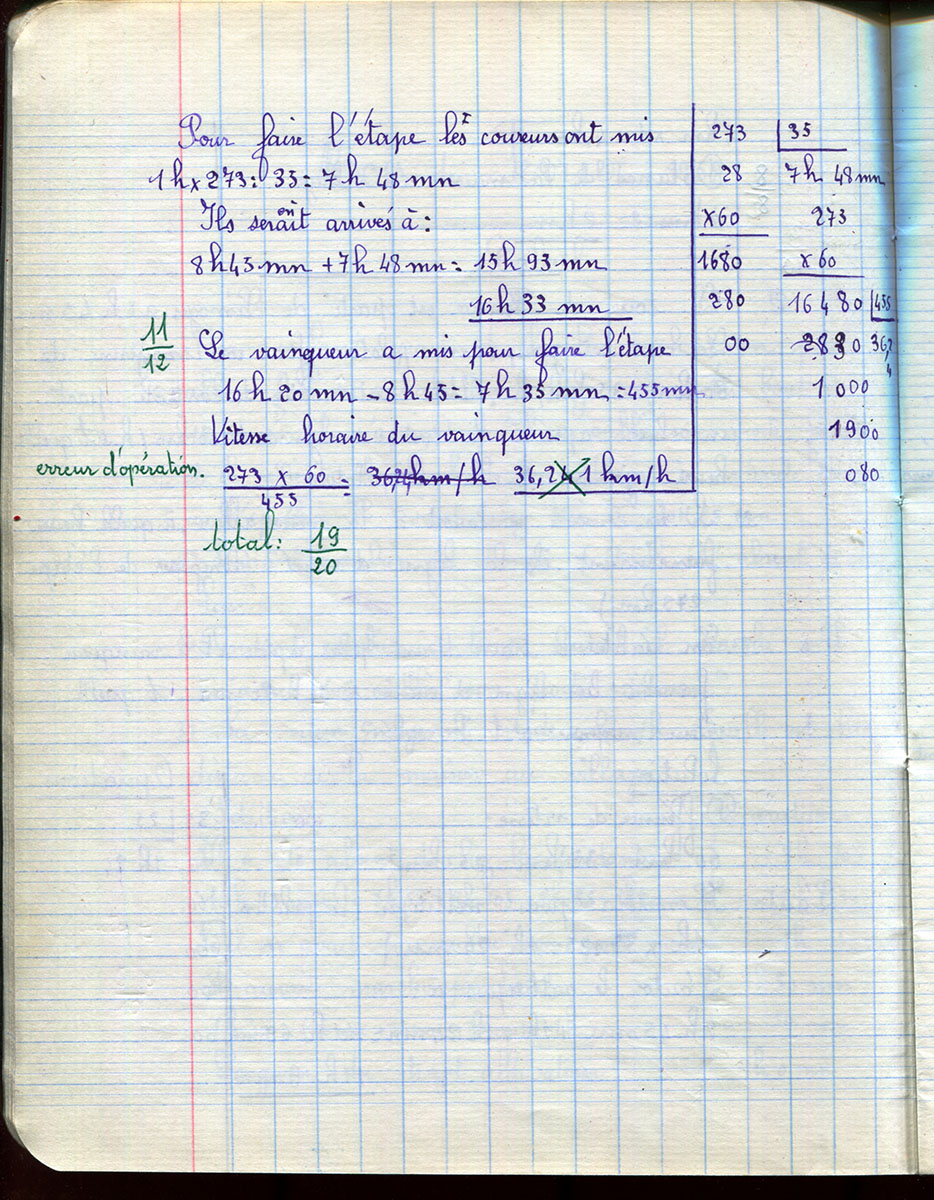 Pour faire l'étape les coureurs ont mis
1h x 273 : 35 = 7h 48 mn
Ils seraient arrivés à :
8h45mn + 7h48mn = 15h 93mn
16h 33 mn
11/12
Le vainqueur a mis pour faire l'étape
16h 20 mn - 8h45 = 7h 35 mn = 455 mn
Vitesse horaire du vainqueur
erreur d'opération.
273 x 60 / 455 = 36,24 1 km/h
total : 19/20
273 35
28 7h 48 mn
x60 273
1680 x 60
280 16480 455
00 2830
1 000
1900
080